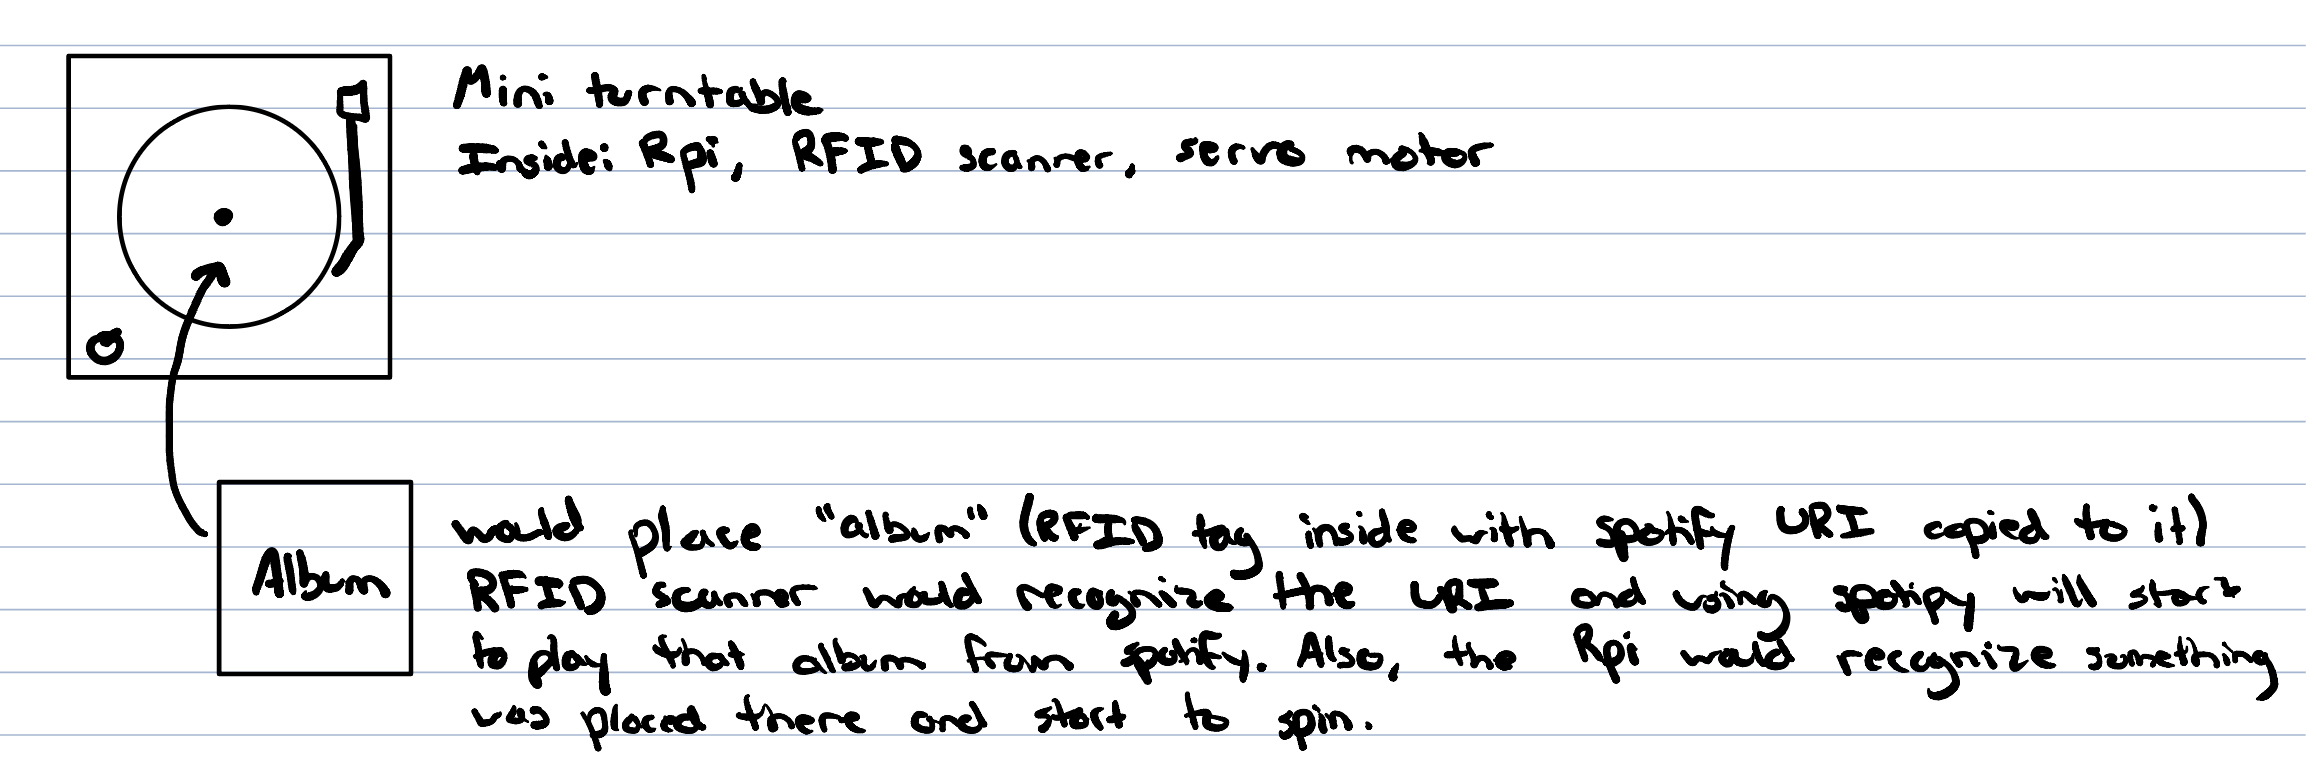 Mini turntable
Inside: Rpi, RFID scanner, servo motor
Album
would place "album" (RFID tag inside with spotify URI copied to it)
RFID scanner would recognize the URI and using spotipy will start
to play that album from spotify. Also, the Rpi would recognize something
was placed there and start to spin.